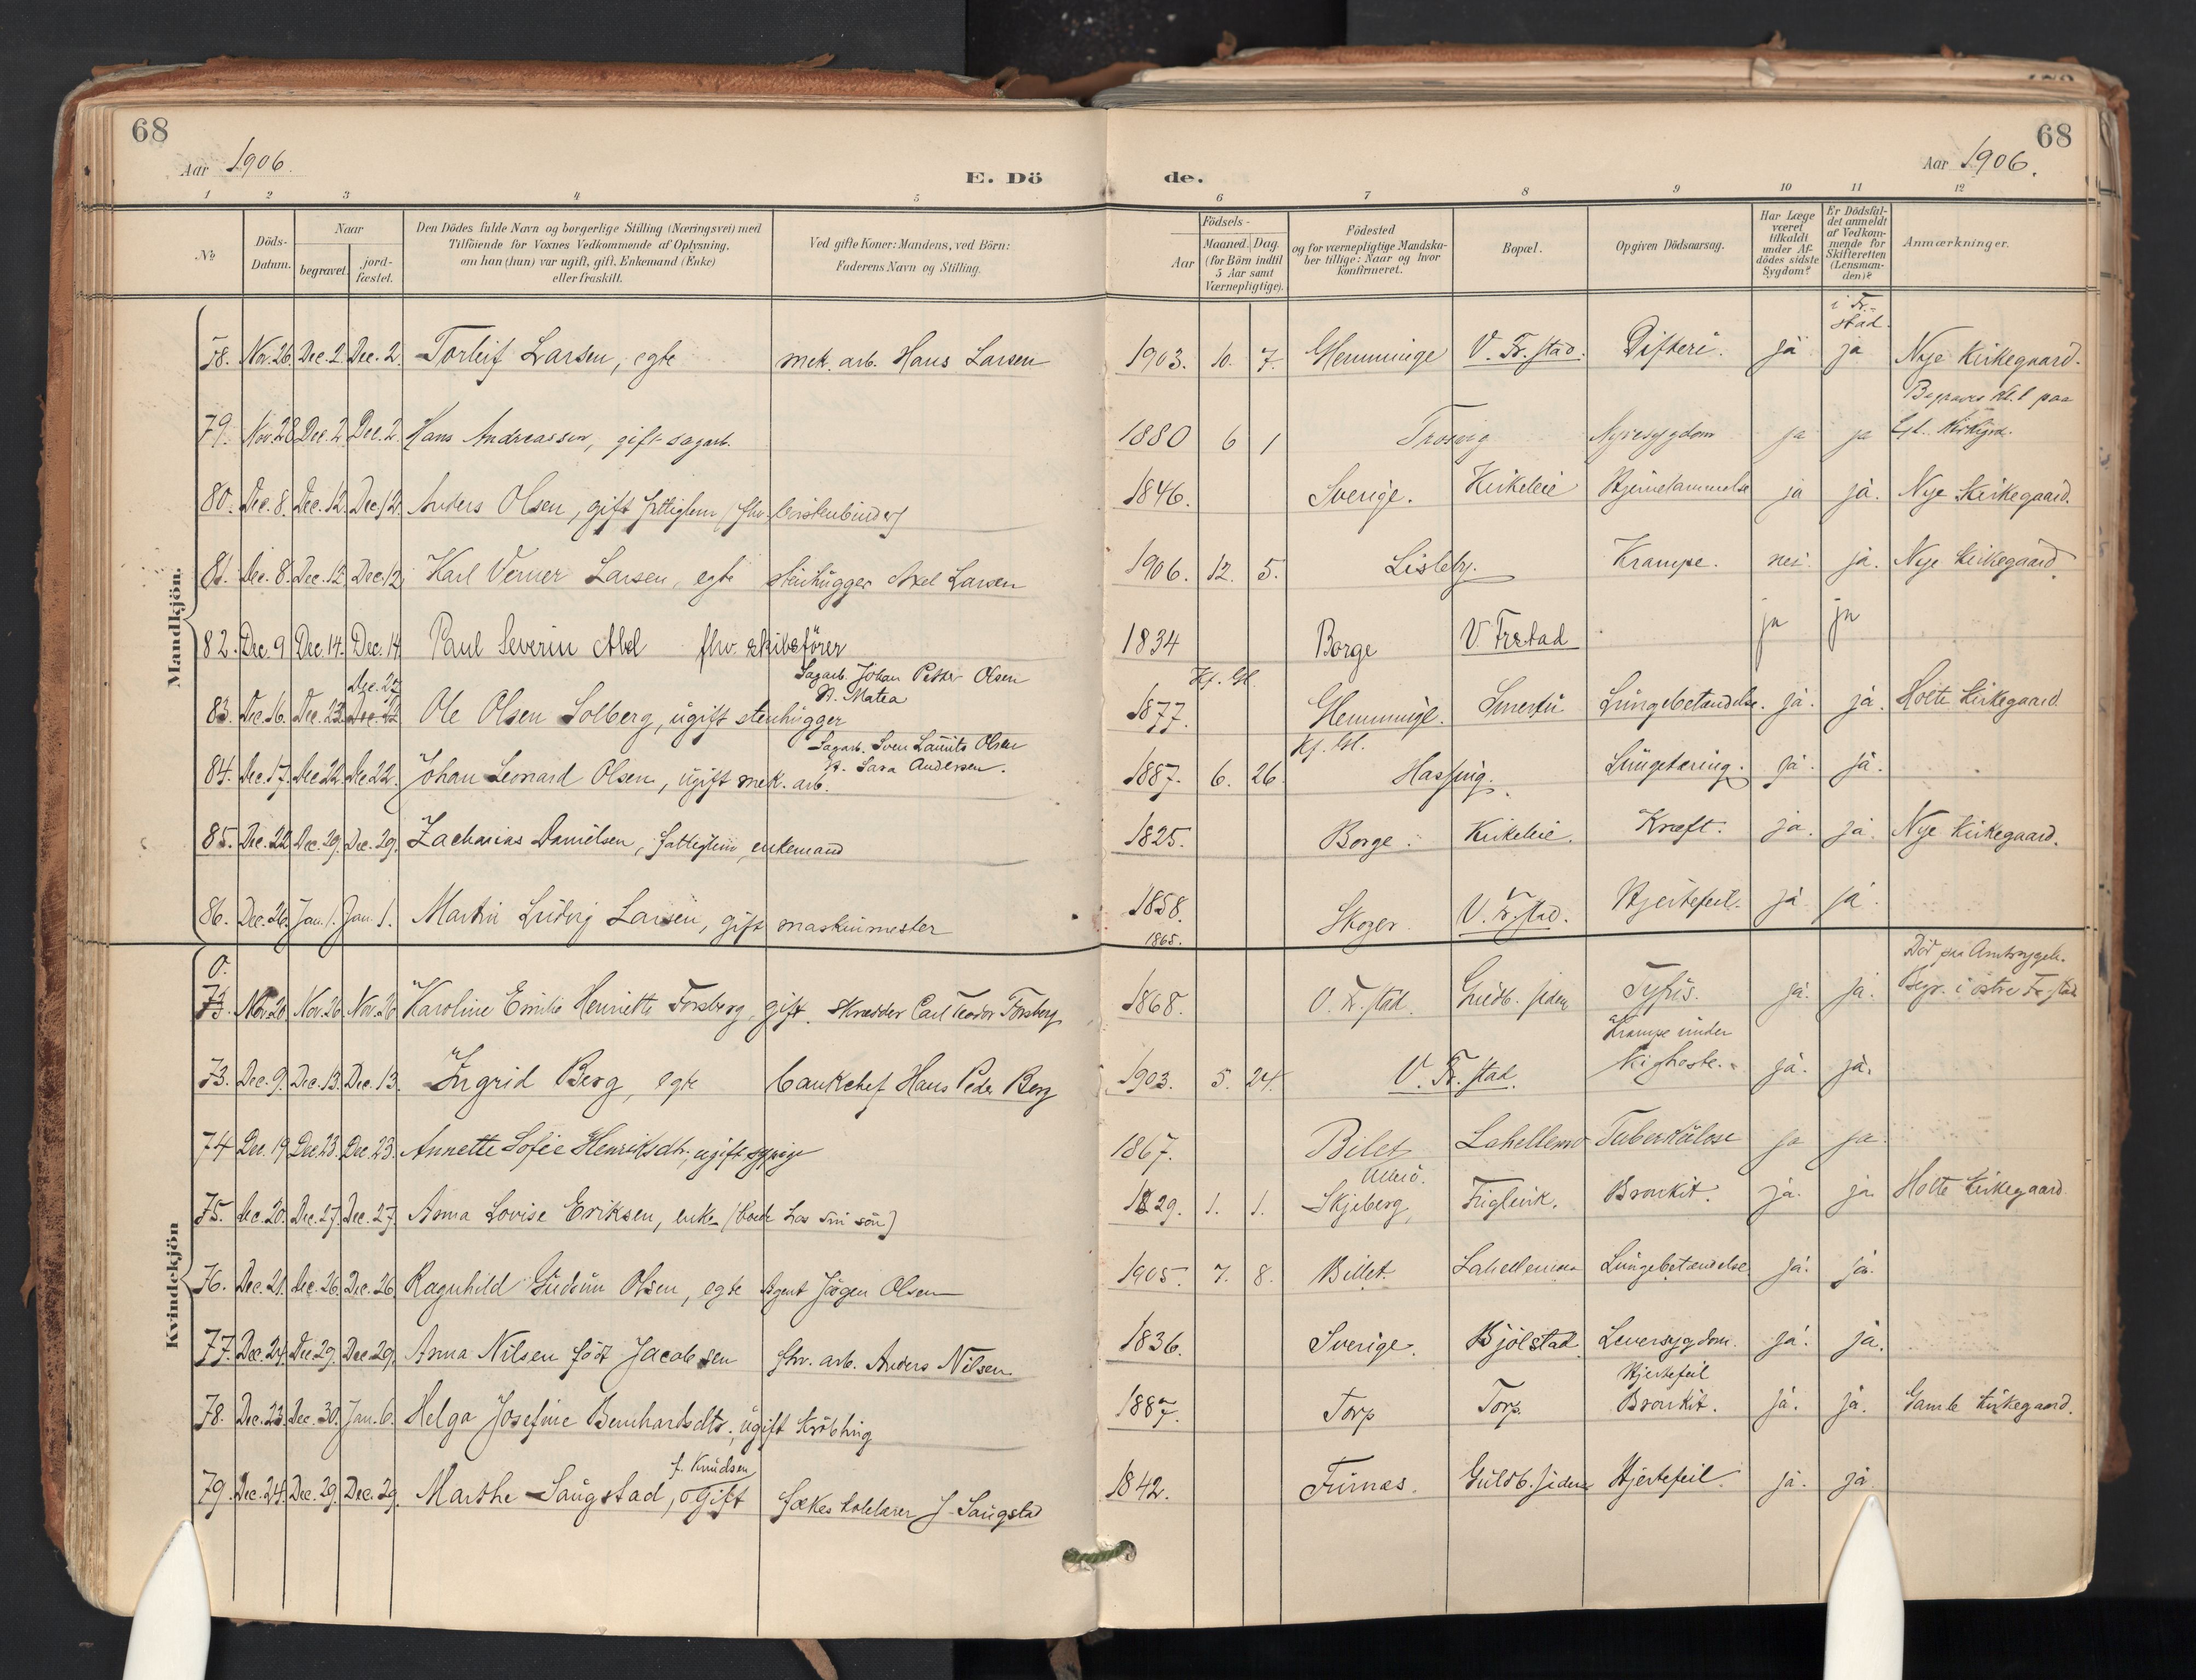 68
68
Aar 1906.
E. Dö
de.
Aar 1906.
1 2 3 4 5 6 7 8 9 10 11 12
No
Döds-Datum.
Naar
begravet.
jord-fæstet.
Den Dödes fulde Navn og borgerlige Stilling (Næringsvei) med
Tilföiende for Voxnes Vedkommende af Oplysning,
om han (hun) var ugift, gift, Enkemand (Enke)
eller fraskilt.
Ved gifte Koner: Mandens, ved Börn:
Faderens Navn og Stilling.
Födsels-
Aar
Maaned. Dag.
(for Börn indtil
5 Aar samt
Værnepligtige).
Födested
og for værnepligtige Mandska-
ber tillige: Naar og hvor
konfirmeret.
Bopæl.
Opgiven Dödsaarsag.
Har Læge
været
tilkaldt
under Af-
dödes sidste
Sygdom?
Er Dödsfal-
det anmeldt
af Vedkom-
mende for
Skifteretten
(Lensman-
den)?
Anmærkninger.
Mandkjön.
i Fr.
stad.
78. Nov. 26 Dec. 2 Dec. 2 Torleif Larsen, egte mek. arb. Hans Larsen 1903. 10. 7. Glemminge V. Fr.stad. Difteri. ja ja Nye Kirkegaard.
Begraves Kl. 1 paa
79. Nov. 28 Dec. 2 Dec. 2 Hans Andreassen, gift sagarb. 1880 6 1 Trosvig Nyresygdom ja ja Gl. Kirkgrd.
80. Dec. 8. Dec. 12 Dec. 12. Anders Olsen, gift fattiglem (fhv. börstenbinder) 1846. Sverige. Kirkeleie Hjernelammelse ja ja. Nye Kirkegaard.
81. Dec. 8. Dec. 12 Dec. 12 Karl Verner Larsen, egte stenhugger Axel Larsen 1906. 12. 5. Lisleby. Krampe. nei. ja. Nye Kirkegaard.
82. Dec. 9 Dec. 14. Dec. 14 Paul Severin Abel fhv. skibsförer 1834 Borge V. Frstad ja ja
Dec. 27
Sagarb. Johan Petter Olsen
H. Matea
83. Dec. 16. Dec. 23. Ole Olsen Solberg, ugift stenhugger 1877. Glemminge. Smertu Lungebetændelse. ja. ja. Holte Kirkegaard
Sagarb. Sven Laurits Olsen
H. Sara Andersen.
84. Dec. 17. Dec. 22. Dec. 22. Johan Leonard Olsen, ugift mek. arb. 1887. 6. 26. Lungetæring. ja. ja.
85. Dec. 22 Dec. 29. Dec. 29. Zacharias Danielsen, fattiglem, enkemand 1825. Borge. Kirkeleie. Kræft. ja. ja. Nye Kirkegaard.
86. Dec. 26. Jan. 1. Jan. 1. Martin Ludvig Larsen, gift maskinmester 1858. Skoger V. Fr.stad. Hjertefeil. ja. ja.
1865.
Kvindekjön
0.
Död paa Amtssygeh.
73. Nov. 20. Nov. 26 Nov. 26 Karoline Emilie Henriette Forsberg, gift. skrædder Carl Teodor Forsberg 1868. O. Fr.stad. Guldb. siden Tyfus. ja. ja. Begr. i östre Fr.stad
Krampe under
73. Dec. 9. Dec. 13. Dec. 13. Ingrid Berg, egte bankchef Hans Peder Berg 1903. 5. 24. V. Fr.stad. Kighoste. ja. ja.
74 Dec. 19 Dec. 23. Dec. 23. Annette Sofie Henriksdtr., ugift sypige 1867. Bilet Lahellemo Tuberkulose ja ja.
75. Dec. 20. Dec. 27 Dec. 27 Anna Lovise Eriksen, enke (boede hos sin sön) 1829. 1. 1. Skjeberg, Bronkit. ja. ja. Holte Kirkegaard
76. Dec. 21. Dec. 26. Dec. 26. Ragnhild Gudrun Olsen, egte Agent Jörgen Olsen 1905. 7. 8. Billet. Lahellemoen Lungebetændelse. ja. ja.
77. Dec. 24. Dec. 29. Dec. 29. Anna Nilsen född Jacobsen fhv. arb. Anders Nilsen 1836. Sverige. Bjölstad. Leversygdom. ja. ja.
Hjertefeil
78. Dec. 23. Dec. 30. Jan. 6. Helga Josefine Bernhardsdtr., ugift Kröbling 1887. Torp Torp. Bronkit. ja. ja. Gamle Kirkegaard.
f. Knudsen
79. Dec. 24. Dec. 29. Dec. 29. Marthe Saugstad, Gift J. Saugstad 1842. Furnes. Guldb. siden Hjertefeil. ja. ja